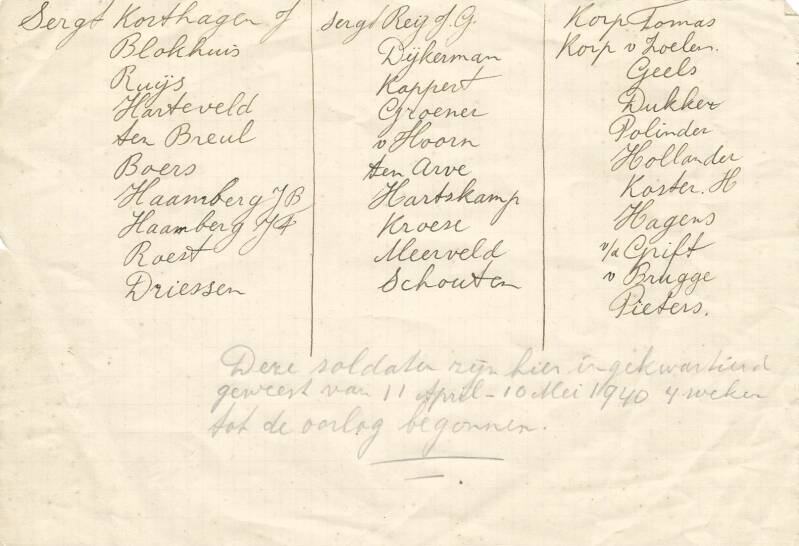 Sergt Korthagen J
Blokhuis
Ruijs
Harteveld
ten Breul
Boers
Haamberg J B
Haamberg J F
Roest
Driessen
Sergt Reij J. G.
Dijkerman
Kappert
Groener
v Hoorn
ten Arve
Hartskamp
Kroese
Meerveld
Schouten
Korp Tomas
Korp v Zoelen.
Geels
Dukker
Polinder
Hollander
Koster. H
Hagens
v/d Grift
v Brugge
Pieters.
Deze soldaten zijn hier ingekwartierd
geweest van 11 April - 10 Mei 1940 4 weken
tot de oorlog begonnen.